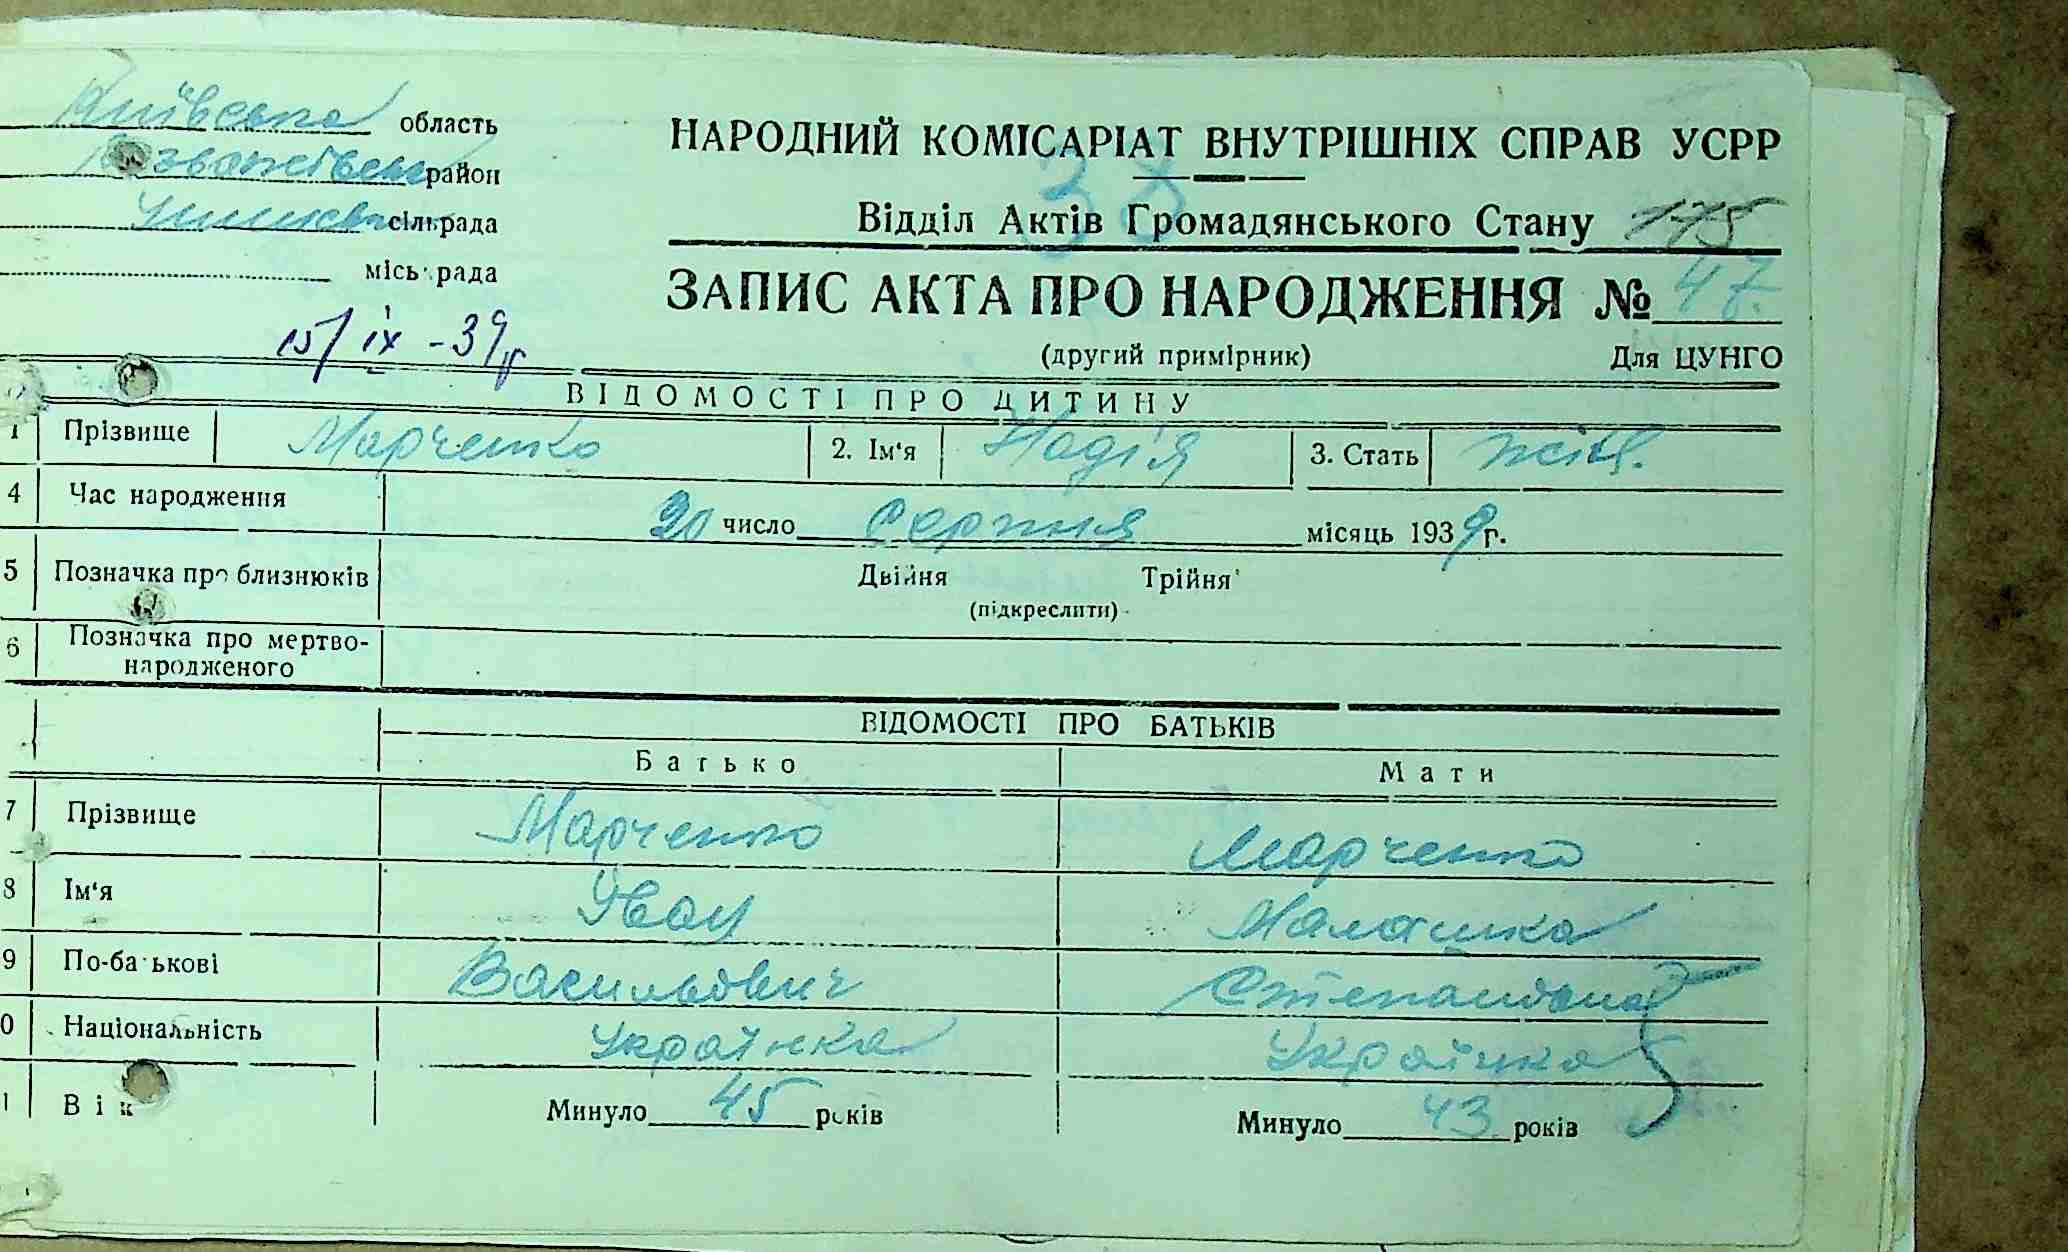 Київська область
район
сільрада
міськрада
НАРОДНИЙ КОМІСАРІАТ ВНУТРІШНІХ СПРАВ УСРР
38
Відділ Актів Громадянського Стану 175
ЗАПИС АКТА ПРО НАРОДЖЕННЯ № 47.
(другий примірник) Для ЦУНГО
15/ІХ-39р
ВІДОМОСТІ ПРО ДИТИНУ
1 Прізвище Марченко 2. Ім'я Надія 3. Стать жін.
4 Час народження 20 число серпня місяць 1939 г.
5 Позначка про близнюків Двійня Трійня
(підкреслити)
6 Позначка про мертво-
народженого
ВІДОМОСТІ ПРО БАТЬКІВ
Батько Мати
7 Прізвище Марченко Марченко
8 Ім'я Іван Малашка
9 По-батькові Васильович Степановна
0 Національність Українка Українка
1 Вік Минуло 45 років Минуло 43 років